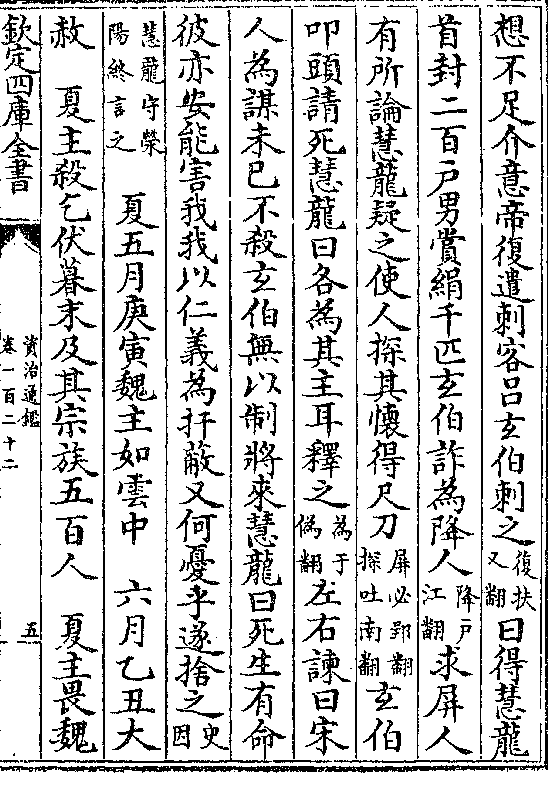 想不足介意帝復遣刺客吕玄伯刺之復扶又翻曰得慧龍
首封二百戸男賞絹千匹玄伯詐為降人降戸江翻求屏人
有所論慧龍疑之使人探其懷得尺刀屏必郢翻探吐南翻玄伯
叩頭請死慧龍曰各為其主耳釋之為于偽翻左右諫曰宋
人為謀未已不殺玄伯無以制將來慧龍曰死生有命
彼亦安能害我我以仁義為扞蔽又何憂乎遂捨之史因
慧龍守榮陽終言之 夏五月庚寅魏主如雲中 六月乙丑大
赦 夏主殺乞伏暮末及其宗族五百人 夏主畏魏
欽定四庫全書 資治通鑑 卷一百二十二 五